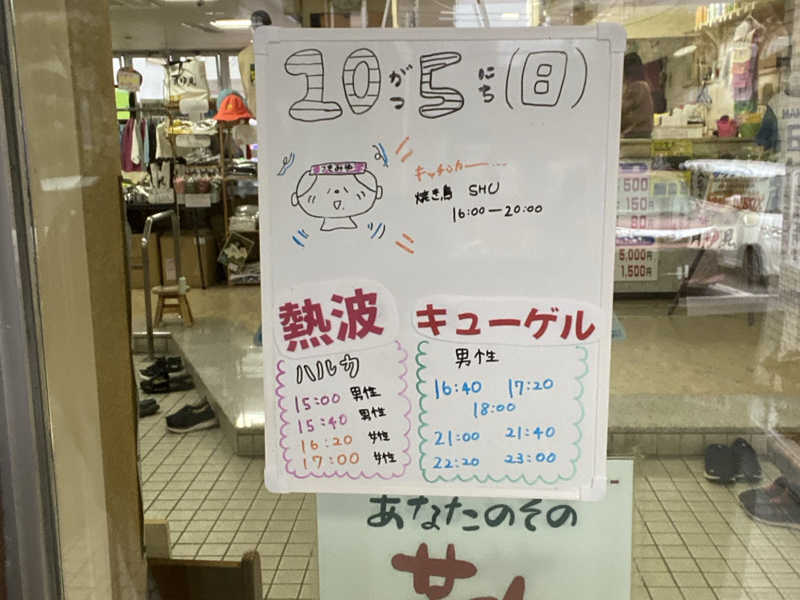 10がつ5にち(日)
つきみゆ
キッチンカー・・・
焼き鳥 SHU
16:00ー20:00
熱波
ハルカ
15:00 男性
15:40 男性
16:20 女性
17:00 女性
キューゲル
男性
16:40 17:20
18:00
21:00 21:40
22:20 23:00
あなたのその
500
150
80
月見
5,000円
1,500円